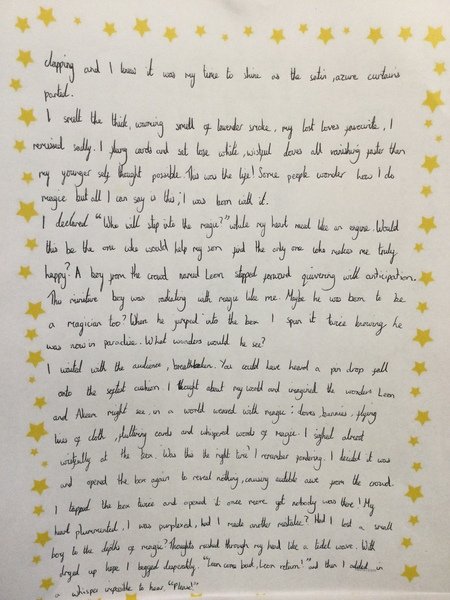 clapping and I knew it was my time to shine as the satin, azure curtains
parted.
I smelt the thick, warming smell of lavender smoke, my lost loves favourite, I
reminised sadly. I flung cards and set lose white, wistful doves all vanishing faster than
my younger self thought possible. This was the life! Some people wonder how I do
magic but all I can say is this; I was born with it.
I declared "Who will step into the magic?" while my heart raced like an engine. Would
this be the one who would help my son find the only one who makes me truly
happy? A boy from the crowd named Leon stepped forward quivering with anticipation.
This miniture boy was radiating with magic like me. Maybe he was born to be
a magician too? When he jumped into the box I span it twice knowing he
was now in paradise. What wonders would he see?
I waited with the audience, breathtaken. You could have heard a pin drop fall
onto the softest cushion. I thought about my world and imagined the wonders Leon
and might see, in a world weaved with magic: doves, bunnies, flying
of cloth, fluttering cards and whispered words of magic. I sighed almost
wistfully at the box. Was this the right time? I remember pondering. I decided it was
and opened the box again to reveal nothing, causing audible awe from the crowd.
I tapped the box twice and opened it once more yet nobody was there! My
heart plummented. I was purplexed, had I made another mistake? Had I lost a small
boy to the depths of magic? Thoughts rushed through my head like a tidel wave. With
up hope I begged desperately, "Leon come back, Leon return!" and then I added in
a whisper impossible to hear, "Please!"